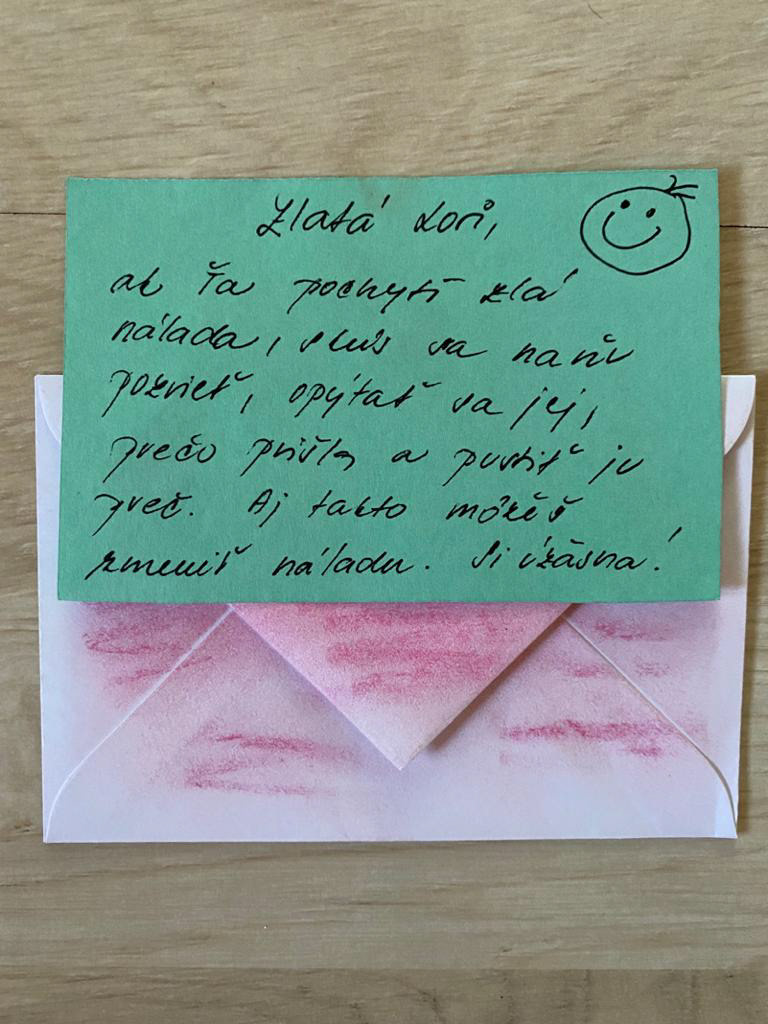 Zlatá Lori,
ak Ťa pochytí zlá
nálada, skús sa na ňu
pozrieť, opýtať sa jej,
prečo prišla a pustiť ju
preč. Aj takto môžeš
zmeniť náladu. Si úžasná!